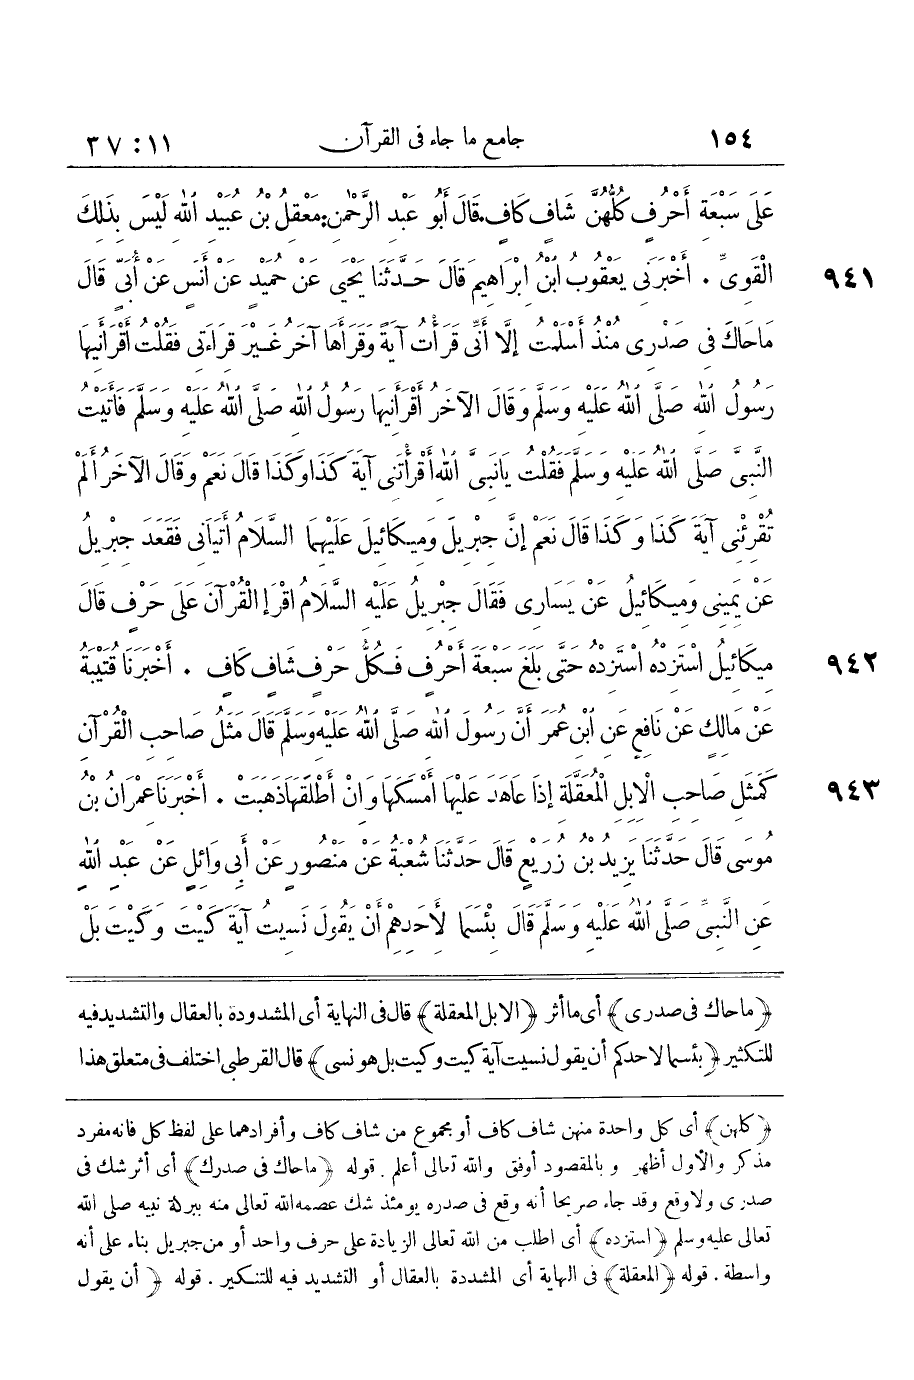 ١٥٤ جامع ما جاء فى القرآن ٣٧:١١
عَلَى سَبْعَةِ أَحْرُفٍ كُلُّهُنَّ شَافٍ كَافٍ. قَالَ أَبُو عَبْدِ الرَّحْمٰنِ: مَعْقِلُ بْنُ عُبَيْدِ اللهِ لَيْسَ بِذٰلِكَ
٩٤١ الْقَوِىِّ . أَخْبَرَنِى يَعْقُوبُ ابْنُ إِبْرَاهِيمَ قَالَ حَدَّثَنَا يَحْيَ عَنْ حُمَيْدٍ عَنْ أَنَسٍ عَنْ أُبَىٍّ قَالَ
مَا حَاكَ فِى صَدْرِى مُنْذُ أَسْلَمْتُ إِلَّا أَنِّى قَرَأْتُ آيَةً وَقَرَأَهَا آخَرُ غَيْرَ قِرَاءَتِى فَقُلْتُ أَقْرَأَنِيهَا
رَسُولُ اللهِ صَلَّى اللهُ عَلَيْهِ وَسَلَّمَ وَقَالَ الآخَرُ أَقْرَأَنِيهَا رَسُولُ اللهِ صَلَّى اللهُ عَلَيْهِ وَسَلَّمَ فَأَتَيْتُ
النَّبِىَّ صَلَّى اللهُ عَلَيْهِ وَسَلَّمَ فَقُلْتُ يَا نَبِىَّ اللهِ أَقْرَأْتَنِى آيَةَ كَذَا وَكَذَا قَالَ نَعَمْ وَقَالَ الآخَرُ أَلَمْ
تُقْرِئْنِى آيَةَ كَذَا وَكَذَا قَالَ نَعَمْ إِنَّ جِبْرِيلَ وَمِيكَائِيلَ عَلَيْهِمَا السَّلَامُ أَتَيَانِى فَقَعَدَ جِبْرِيلُ
عَنْ يَمِينِى وَمِيكَائِيلُ عَنْ يَسَارِى فَقَالَ جِبْرِيلُ عَلَيْهِ السَّلَامُ اقْرَإِ الْقُرْآنَ عَلَى حَرْفٍ قَالَ
٩٤٢ مِيكَائِيلُ اسْتَزِدْهُ اسْتَزِدْهُ حَتَّى بَلَغَ سَبْعَةَ أَحْرُفٍ فَكُلُّ حَرْفٍ شَافٍ كَافٍ . أَخْبَرَنَا قُتَيْبَةُ
عَنْ مَالِكٍ عَنْ نَافِعٍ عَنِ ابْنِ عُمَرَ أَنَّ رَسُولَ اللهِ صَلَّى اللهُ عَلَيْهِ وَسَلَّمَ قَالَ مَثَلُ صَاحِبِ الْقُرْآنِ
٩٤٣ كَمَثَلِ صَاحِبِ الْإِبِلِ الْمُعَقَّلَةِ إِذَا عَاهَدَ عَلَيْهَا أَمْسَكَهَا وَإِنْ أَطْلَقَهَا ذَهَبَتْ . أَخْبَرَنَا عِمْرَانُ بْنُ
مُوسَى قَالَ حَدَّثَنَا يَزِيدُ بْنُ زُرَيْعٍ قَالَ حَدَّثَنَا شُعْبَةُ عَنْ مَنْصُورٍ عَنْ أَبِى وَائِلٍ عَنْ عَبْدِ اللهِ
عَنِ النَّبِىِّ صَلَّى اللهُ عَلَيْهِ وَسَلَّمَ قَالَ بِئْسَمَا لِأَحَدِهِمْ أَنْ يَقُولَ نَسِيتُ آيَةَ كَيْتَ وَكَيْتَ بَلْ
﴿ما حاك فى صدرى﴾ أى ما أثر ﴿الابل المعقلة﴾ قال فى النهاية أى المشدودة بالعقال والتشديد فيه
للتكثير ﴿بئسما لاحدكم أن يقول نسيت آية كيت وكيت بل هو نسى﴾ قال القرطبى اختلف فى متعلق هذا
﴿كلهن﴾ أى كل واحدة منهن شاف كاف أو مجموع من شاف كاف وأفرادهما على لفظ كل فانه مفرد
مذكر والأول أظهر و بالمقصود أوفق والله تعالى أعلم . قوله ﴿ماحاك فى صدرك﴾ أى أثر شك فى
صدرى ولا وقع وقد جاء صريحا أنه وقع فى صدره يومئذ شك عصمه الله تعالى منه ببركة نبيه صلى الله
تعالى عليه وسلم ﴿استزده﴾ أى اطلب من الله تعالى الزيادة على حرف واحد أو من جبريل بناء على أنه
واسطة . قوله ﴿المعقلة﴾ فى النهاية أى المشددة بالعقال أو التشديد فيه للتنكير . قوله ﴿ أن يقول